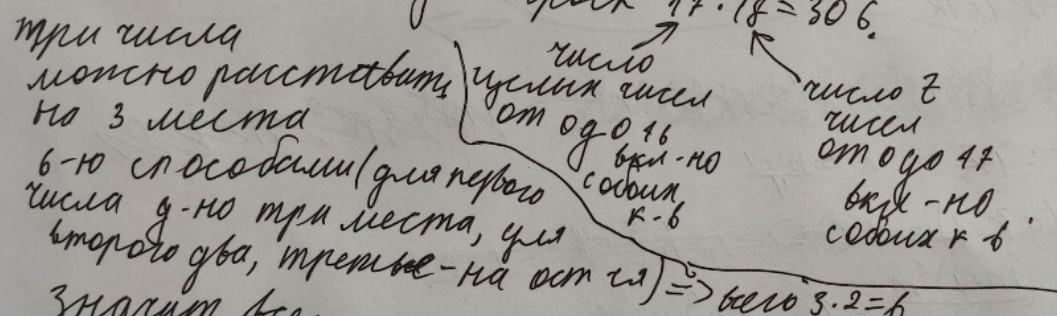 17 · 18 = 306.
три числа
можно расставить
на 3 места
6-ю способами (для первого
числа д-но три места, для
второго два, третье - на ост-ся) => всего 3·2=6
Значит
число
целых чисел
от 0 до 16
вкл-но
с обоих
к-в
число Z
чисел
от 0 до 17
вкл-но
с обоих к-в.